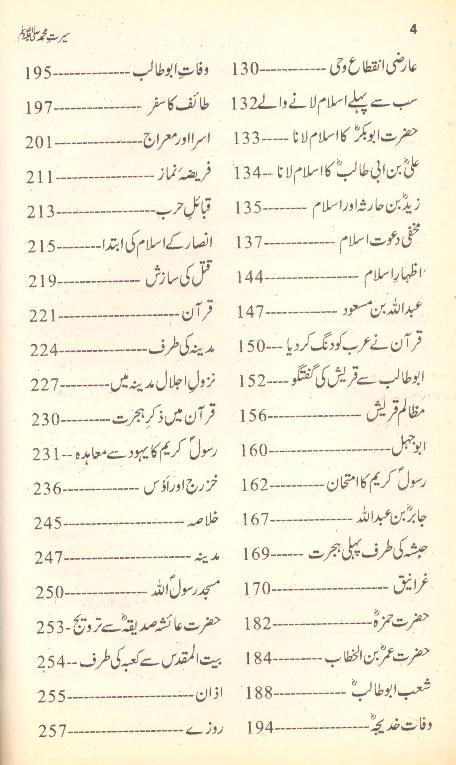 4
سیرت محمد ﷺ
عارضی انقطاع وحی ------------130
سب سے پہلے اسلام لانے والے132
حضرت ابوبکرؓ کا اسلام لانا -----133
علیؓ بن ابی طالبؓ کا اسلام لانا --134
زیدؓ بن حارثہ اور اسلام --------135
مخفی دعوت اسلام -------------137
اظہار اسلام ------------------144
عبداللہ بن مسعود --------------147
قرآن نے عرب کو دنگ کر دیا ---150
ابوطالب سے قریش کی گفتگو ----152
مظالم قریش ------------------156
ابوجہل ----------------------160
رسولؐ کریم کا امتحان ----------162
جابرؓ بن عبداللہ --------------167
حبشہ کی طرف پہلی ہجرت ------169
غرانیق ----------------------170
حضرت حمزہؓ-----------------182
حضرت عمرؓ بن الخطاب --------184
شعب ابوطالبؓ ---------------188
وفات خدیجہؓ-----------------194
وفات ابوطالب ---------------195
طائف کا سفر -----------------197
اسرا اور معراج----------------201
فریضۂ نماز -------------------211
قبائل حرب------------------213
انصار کے اسلام کی ابتدا--------215
قتل کی سازش ----------------219
قرآن -----------------------221
مدینہ کی طرف ----------------224
نزول اجلال مدینہ میں----------227
قرآن میں ذکر ہجرت ----------230
رسولؐ کریم کا یہود سے معاہدہ --231
خزرج اور اَوس --------------236
خلاصہ ----------------------245
مدینہ -----------------------247
مسجد رسولؐ اللہ --------------250
حضرت عائشہ صدیقہؓ سے ترویج -253
بیت المقدس سے کعبہ کی طرف --254
اذان -----------------------255
روزے ----------------------257